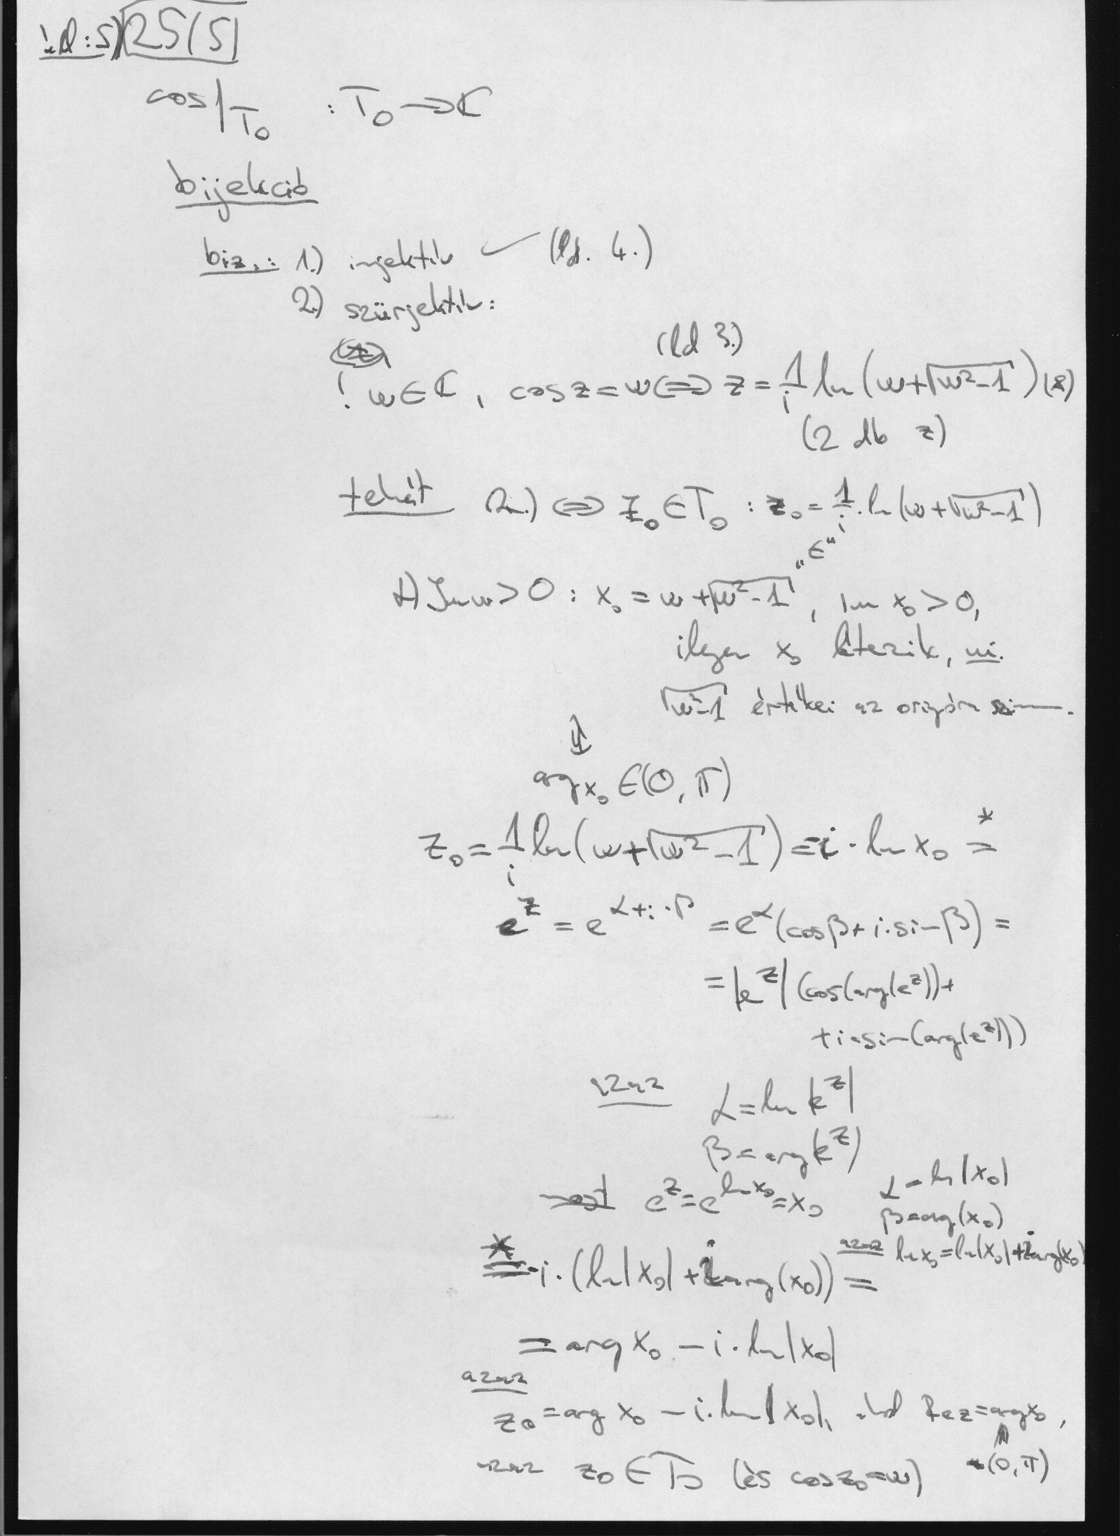 25/5
cos|T₀ : T₀ → ℂ
bijekció
biz.: 1.) injektív ✓ (ld. 4.)
2.) szürjektív:
(ld 3.)
! w∈ℂ, cos z = w ⟺ z = 1/i ln(w+√(w²-1)) (*)
(2 db z)
tehát ⟺ z₀∈T₀ : z₀ = 1/i · ln(w+√(w²-1))
"∈"
α) Im w > 0 : x₀ = w+√(w²-1), Im x₀ > 0,
ilyen x₀ létezik, mi.
√(w²-1) értékei az origóra szim.
⇓
arg x₀ ∈ (0, π)
z₀ = 1/i ln(w+√(w²-1)) = -i · ln x₀ =*
e^z = e^(α+i·β) = e^α (cos β + i·sin β) =
= |e^z| (cos(arg(e^z)) +
+ i·sin(arg(e^z)))
azaz α = ln |e^z|
β = arg(e^z)
most e^z = e^(ln x₀) = x₀ α = ln |x₀|
β = arg(x₀)
azaz ln x₀ = ln|x₀| + i arg(x₀)
=* -i · (ln|x₀| + i arg(x₀)) =
= arg x₀ - i · ln|x₀|
azaz
z₀ = arg x₀ - i · ln|x₀|, ahol Re z = arg x₀,
∈ (0, π)
azaz z₀ ∈ T₀ (és cos z₀ = w)